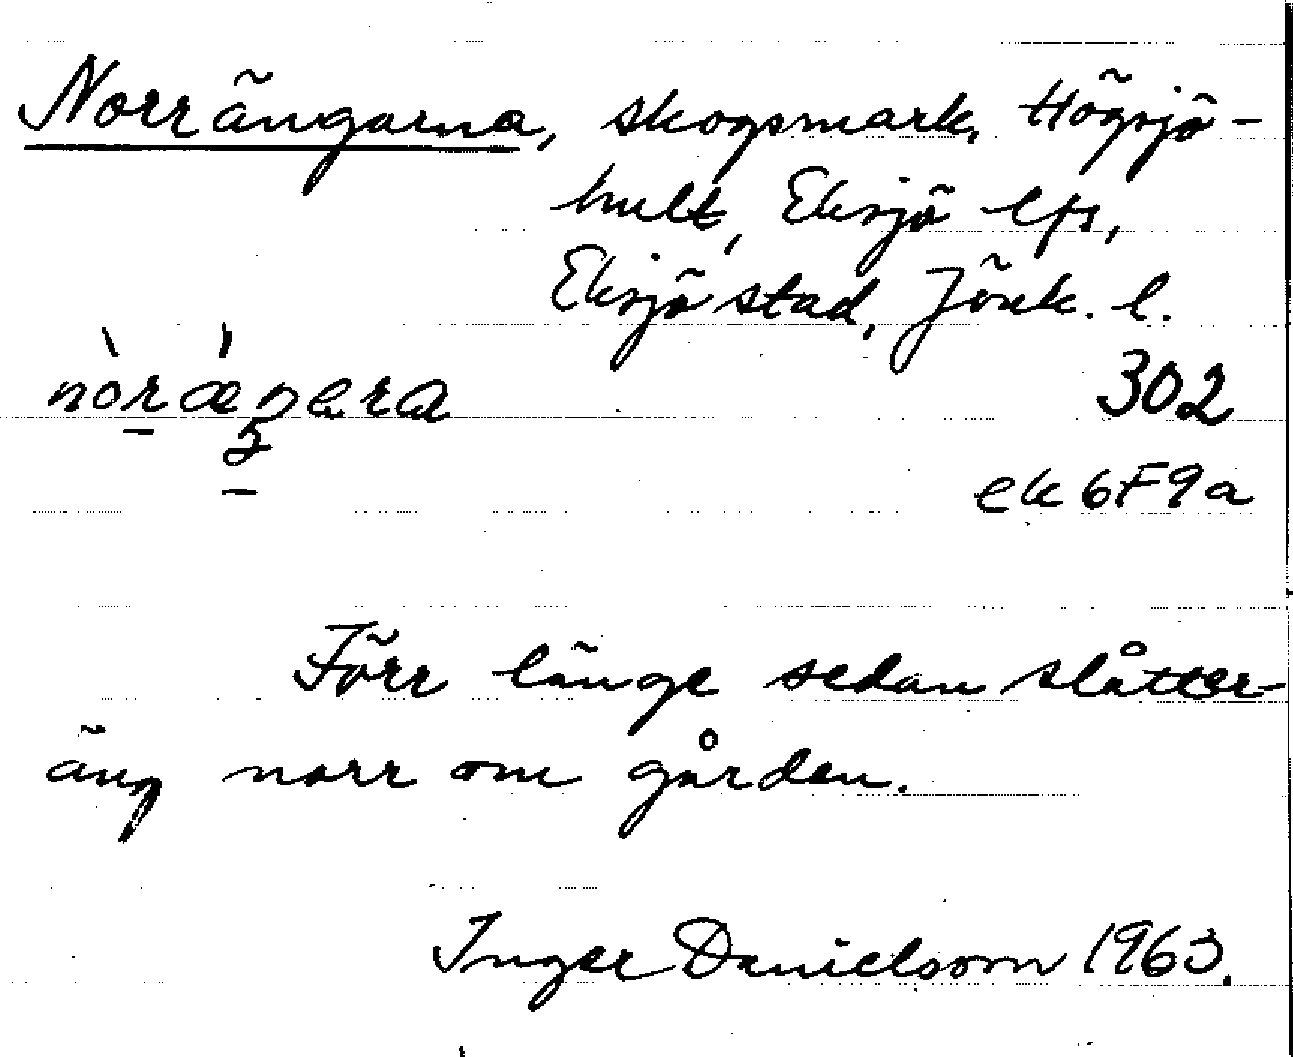 Norrängarna, skogsmark, Högsjö-
hult, Eksjö lfs,
Eksjö stad, Jönk. l.
nòræ̀ŋera
302
ek 6F9a
Förr länge sedan slåtter-
äng norr om gården.
Inger Danielsson 1963.